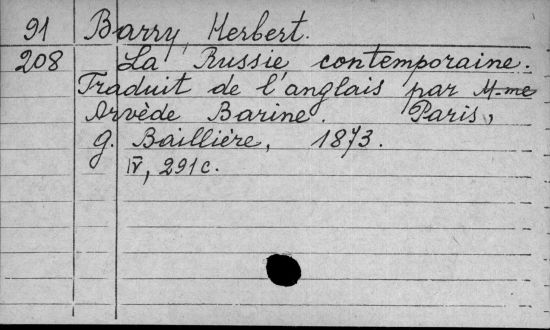 91 Barry, Herbert.
208 La Russie contemporaine.
Traduit de l'anglais par M-me
Arvède Barine. Paris,
G. Baillière, 1873.
IV, 291 c.